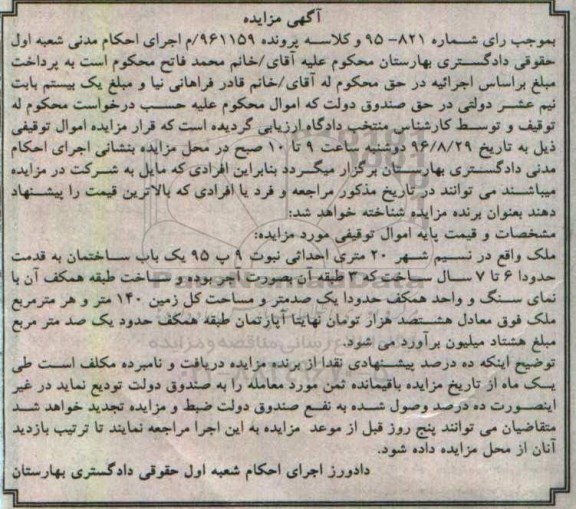 آگهی مزایده
بموجب رای شماره ۸۲۱- ۹۵ و کلاسه پرونده ۹۶۱۱۵۹/م اجرای احکام مدنی شعبه اول
حقوقی دادگستری بهارستان محکوم علیه آقای/خانم محمد فاتح محکوم است به پرداخت
مبلغ براساس اجرائیه در حق محکوم له آقای/خانم قادر فراهانی نیا و مبلغ یک بیستم بابت
نیم عشر دولتی در حق صندوق دولت که اموال محکوم علیه حسب درخواست محکوم له
توقیف و توسط کارشناس منتخب دادگاه ارزیابی گردیده است که قرار مزایده اموال توقیفی
ذیل به تاریخ ۹۶/۸/۲۹ دوشنبه ساعت ۹ تا ۱۰ صبح در محل مزایده بنشانی اجرای احکام
مدنی دادگستری بهارستان برگزار میگردد بنابراین افرادی که مایل به شرکت در مزایده
میباشند می توانند در تاریخ مذکور مراجعه و فرد یا افرادی که بالاترین قیمت را پیشنهاد
دهند بعنوان برنده مزایده شناخته خواهد شد:
مشخصات و قیمت پایه اموال توقیفی مورد مزایده:
ملک واقع در نسیم شهر ۲۰ متری احداثی نبوت ۹ پ ۹۵ یک باب ساختمان به قدمت
حدودا ۶ تا ۷ سال ساخت که ۳ طبقه آن بصورت واحد بوده و ساخت طبقه همکف آن با
نمای سنگ و واحد همکف حدودا یک صدمتر و مساحت کل زمین ۱۴۰ متر و هر مترمربع
ملک فوق معادل هشتصد هزار تومان نهایتا آپارتمان طبقه همکف حدود یک صد متر مربع
مبلغ هشتاد میلیون برآورد می شود.
توضیح اینکه ده درصد پیشنهادی نقدا از برنده مزایده دریافت و نامبرده مکلف است طی
یک ماه از تاریخ مزایده باقیمانده ثمن مورد معامله را به صندوق دولت تودیع نماید در غیر
اینصورت ده درصد وصول شده به نفع صندوق دولت ضبط و مزایده تجدید خواهد شد
متقاضیان می توانند پنج روز قبل از موعد مزایده به این اجرا مراجعه نمایند تا ترتیب بازدید
آنان از محل مزایده داده شود.
دادورز اجرای احکام شعبه اول حقوقی دادگستری بهارستان